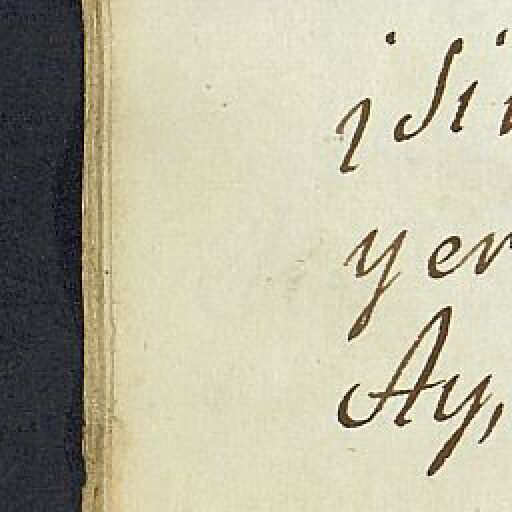 ¡Si
yer
Ay,